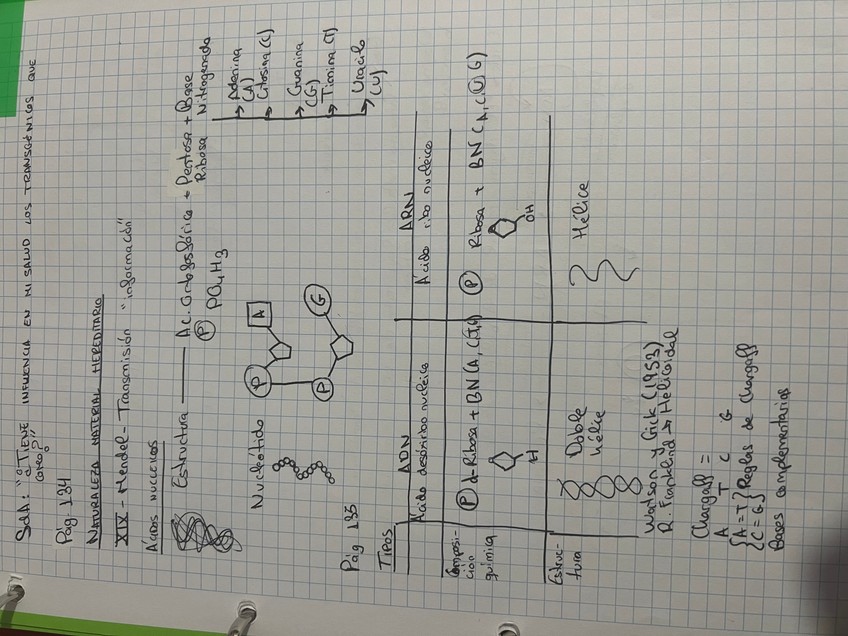 SdA: "¿TIENE INFLUENCIA EN MI SALUD LOS TRANSGÉNICOS QUE
como?"
Pág 134
NATURALEZA MATERIAL HEREDITARIO
XIX - Mendel - Transmisión "información"
ÁCIDOS NUCLEICOS
Estructura — Ac. ortofosfórico + Pentosa + Base
Ribosa Nitrogenada
(P) PO4H3
→ Adenina
(A)
→ Citosina (C)
→ Guanina
(G)
→ Timina (T)
→ Uracilo
(U)
Nucleótido
P A
P G
Pág 135
TIPOS
ADN ARN
Ácido desoxirribo nucleico Ácido ribo nucleico
Composi-
ción
química
(P) d-Ribosa + BN (A, C, T, G) (P) Ribosa + BN (A, C, U, G)
H OH
Estruc-
tura
Doble
hélice
Hélice
Watson y Crick (1953)
R. Franklind → Helicoidal
Chargaff =
A T C G
{A = T} Reglas de Chargaff
{C = G}
Bases complementarias